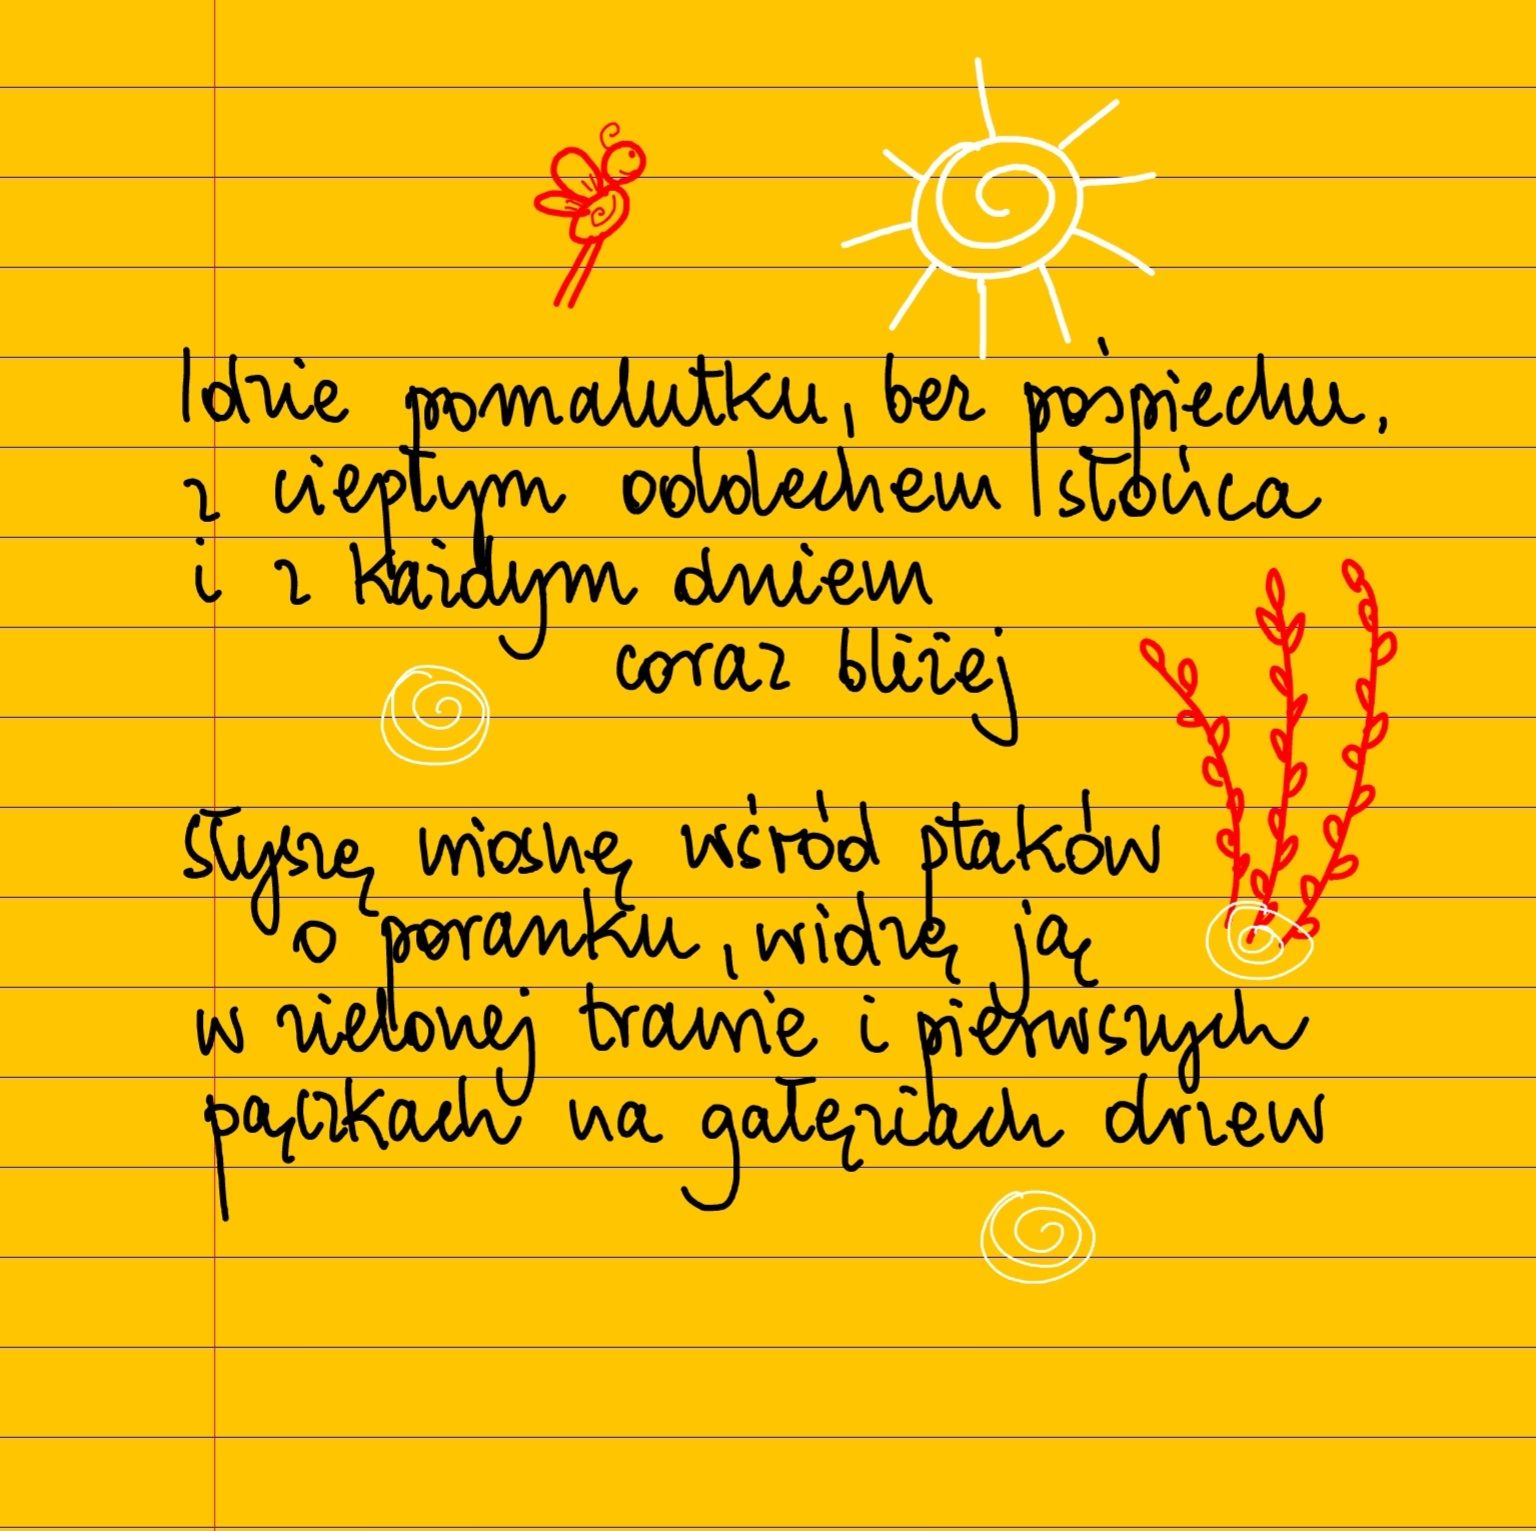 Idzie pomalutku, bez pośpiechu,
z ciepłym oddechem słońca
i z każdym dniem
coraz bliżej
słyszę wiosnę wśród ptaków
o poranku, widzę ją
w zielonej trawie i pierwszych
pączkach na gałęziach drzew